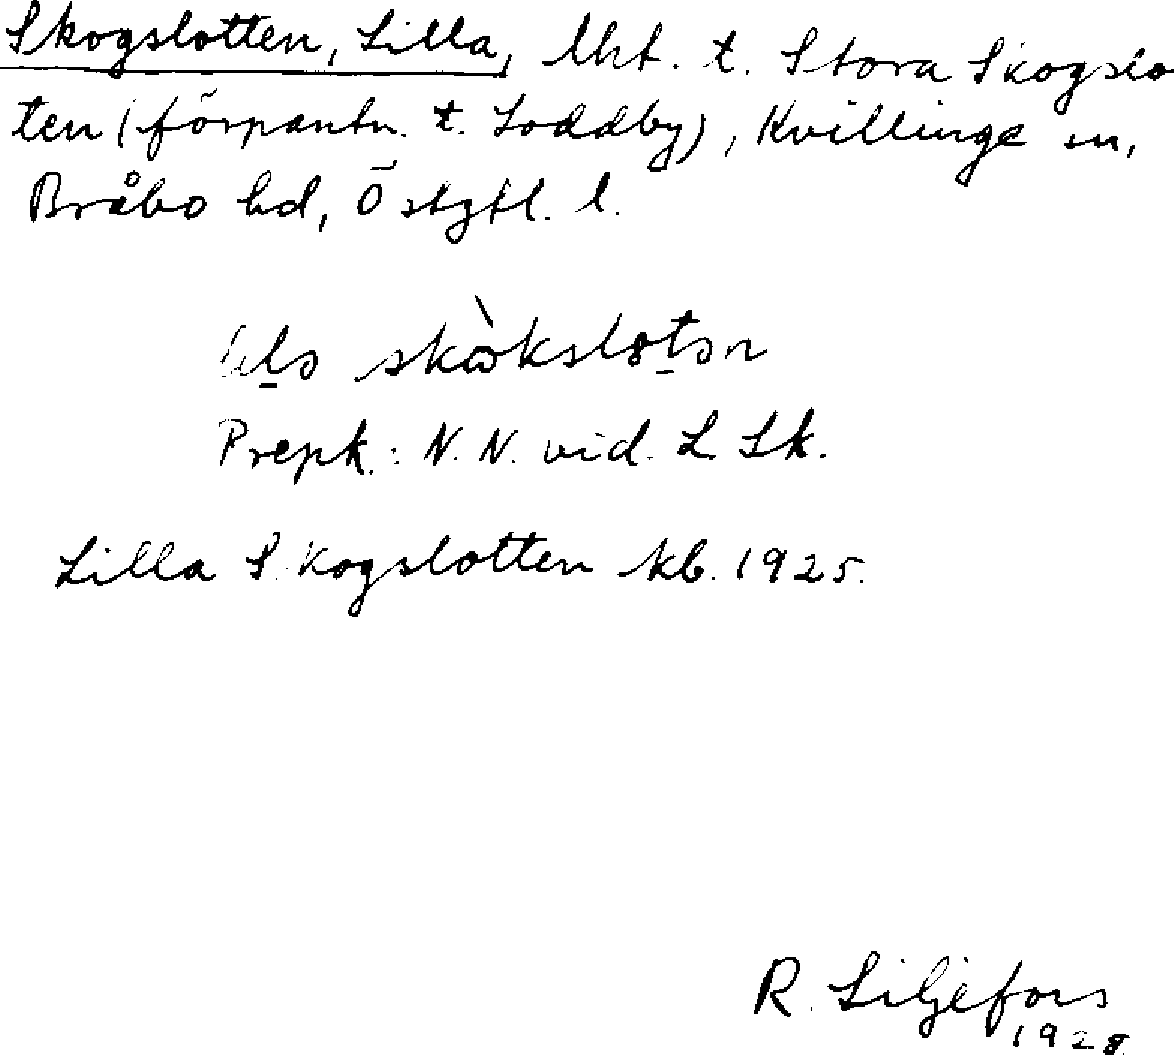 Skogslotten, Lilla, lht. t. Stora Skogslo
ten (förpantn. t. Loddby), Kvillinge sn,
Bråbo hd, Östgtl. l.
skὼkslotən
Prepk.: N. N. vid L. Sk.
Lilla Skogslotten kb. 1925.
R. Liljefors
1928